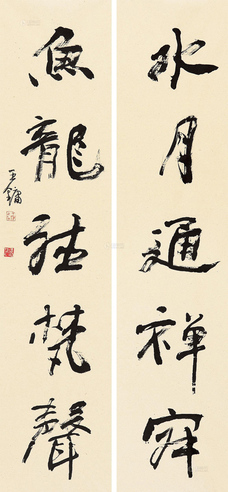 水月通禅寂
魚龍聽梵聲
王鏞